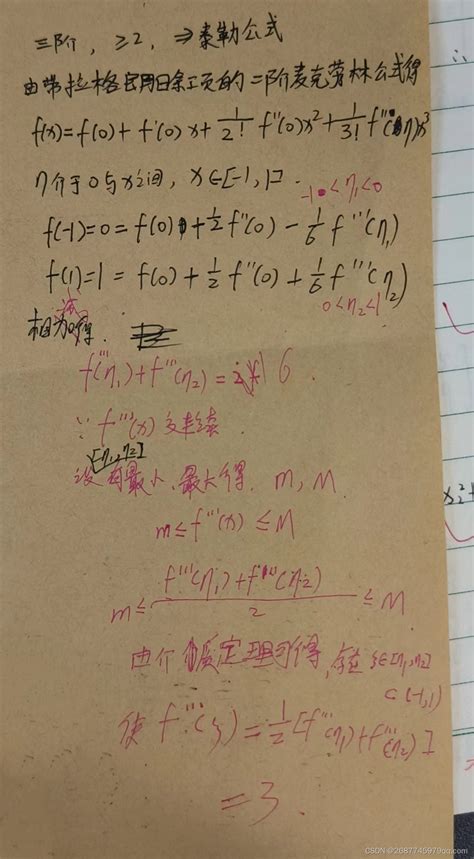 三阶，≥2，⇒泰勒公式
由带拉格朗日余项的二阶麦克劳林公式得
f(x)=f(0)+f'(0)x+1/2! f''(0)x²+1/3! f'''(η)x³
η介于0与x之间，x∈[-1,1].
-1<η₁<0
f(-1)=0=f(0)+1/2 f''(0)-1/6 f'''(η₁)
f(1)=1=f(0)+1/2 f''(0)+1/6 f'''(η₂)
0<η₂<1
相减得.
f'''(η₁)+f'''(η₂)=6.
∵f'''(x)连续
[η₁,η₂]
设有最小、最大值. m, M
m≤f'''(x)≤M
m≤ f'''(η₁)+f'''(η₂)/2 ≤M
由介值定理可得, ξ∈[η₁,η₂]
⊂(-1,1)
使 f'''(ξ)=1/2[f'''(η₁)+f'''(η₂)]
=3.
x₂²+
CSDN @2687745979qq.com